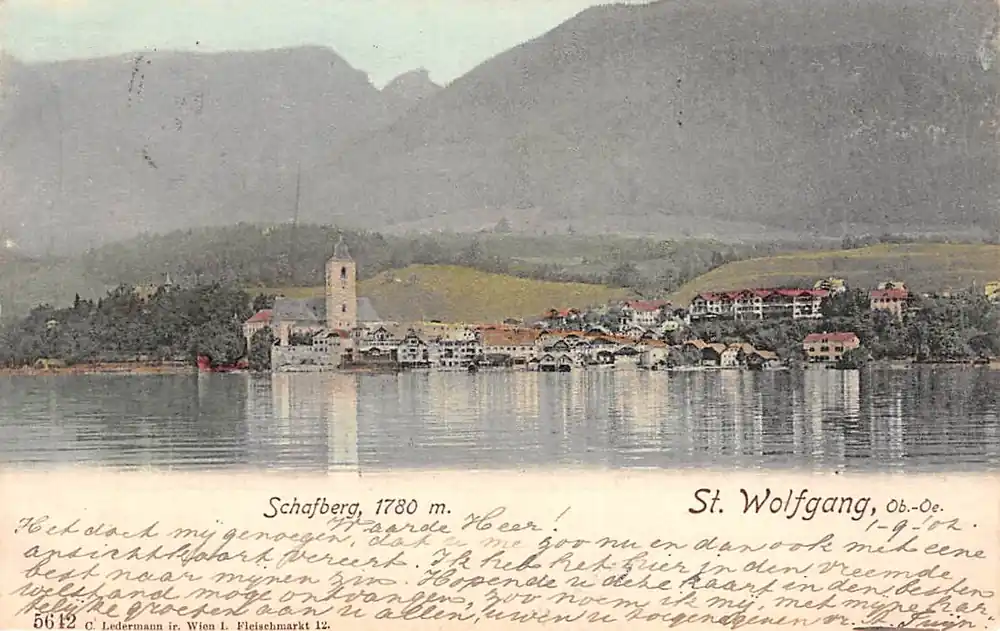 Schafberg, 1780 m.
St. Wolfgang, Ob.-Oe.
1-9-'02.
Waarde Heer!
Het doet mij genoegen, dat U me zoo nu en dan ook met eene
ansichtkaart vereert. Ik heb het hier in den vreemde
best naar mynen zin. Hopende U deze kaart in den besten
welstand moge ontvangen, zoo noem ik mij, met myne har
telijke groeten aan U allen, Uwen U toegenegenen vr.
5642 C. Ledermann jr. Wien I. Fleischmarkt 12.